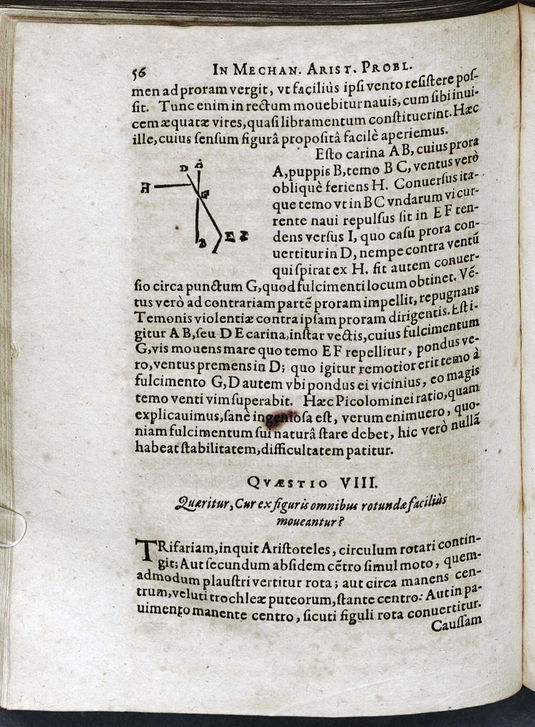 56 IN MECHAN. ARIST. PROBL.
men ad proram vergit, vt faciliùs ipsi vento resistere pos-
sit. Tunc enim in rectum mouebitur nauis, cum sibi inui-
cem æquatæ vires, quasi libramentum constituerint. Hæc
ille, cuius sensum figurâ propositâ facilè aperiemus.
Esto carina A B, cuius prora
A, puppis B, temo B C, ventus verò
obliquè feriens H. Conuersus ita-
que temo vt in B C vndarum vi cur-
rente naui repulsus sit in E F ten-
dens versus I, quo casu prora con-
uertitur in D, nempe contra ventū
qui spirat ex H. fit autem conuer-
sio circa punctum G, quod fulcimenti locum obtinet. Vē-
tus verò ad contrariam partē proram impellit, repugnans
Temonis violentiæ contra ipsam proram dirigentis. Est i-
gitur A B, seu D E carina, instar vectis, cuius fulcimentum
G, vis mouens mare quo temo E F repellitur, pondus ve-
ro, ventus premens in D; quo igitur remotior erit temo à
fulcimento G, D autem vbi pondus ei vicinius, eo magis
temo venti vim superabit. Hæc Picolominei ratio, quam
explicauimus, sanè ingeniosa est, verum enimuero, quo-
niam fulcimentum sui naturâ stare debet, hic verò nullā
habeat stabilitatem, difficultatem patitur.
D A
H
G
B E I
QVÆSTIO VIII.
Quæritur, Cur ex figuris omnibus rotundæ faciliùs
moueantur?
TRifariam, inquit Aristoteles, circulum rotari contin-
git; Aut secundum absidem cētro simul moto, quem-
admodum plaustri vertitur rota; aut circa manens cen-
trum, veluti trochleæ puteorum, stante centro: Aut in pa-
uimento manente centro, sicuti figuli rota conuertitur.
Caussam